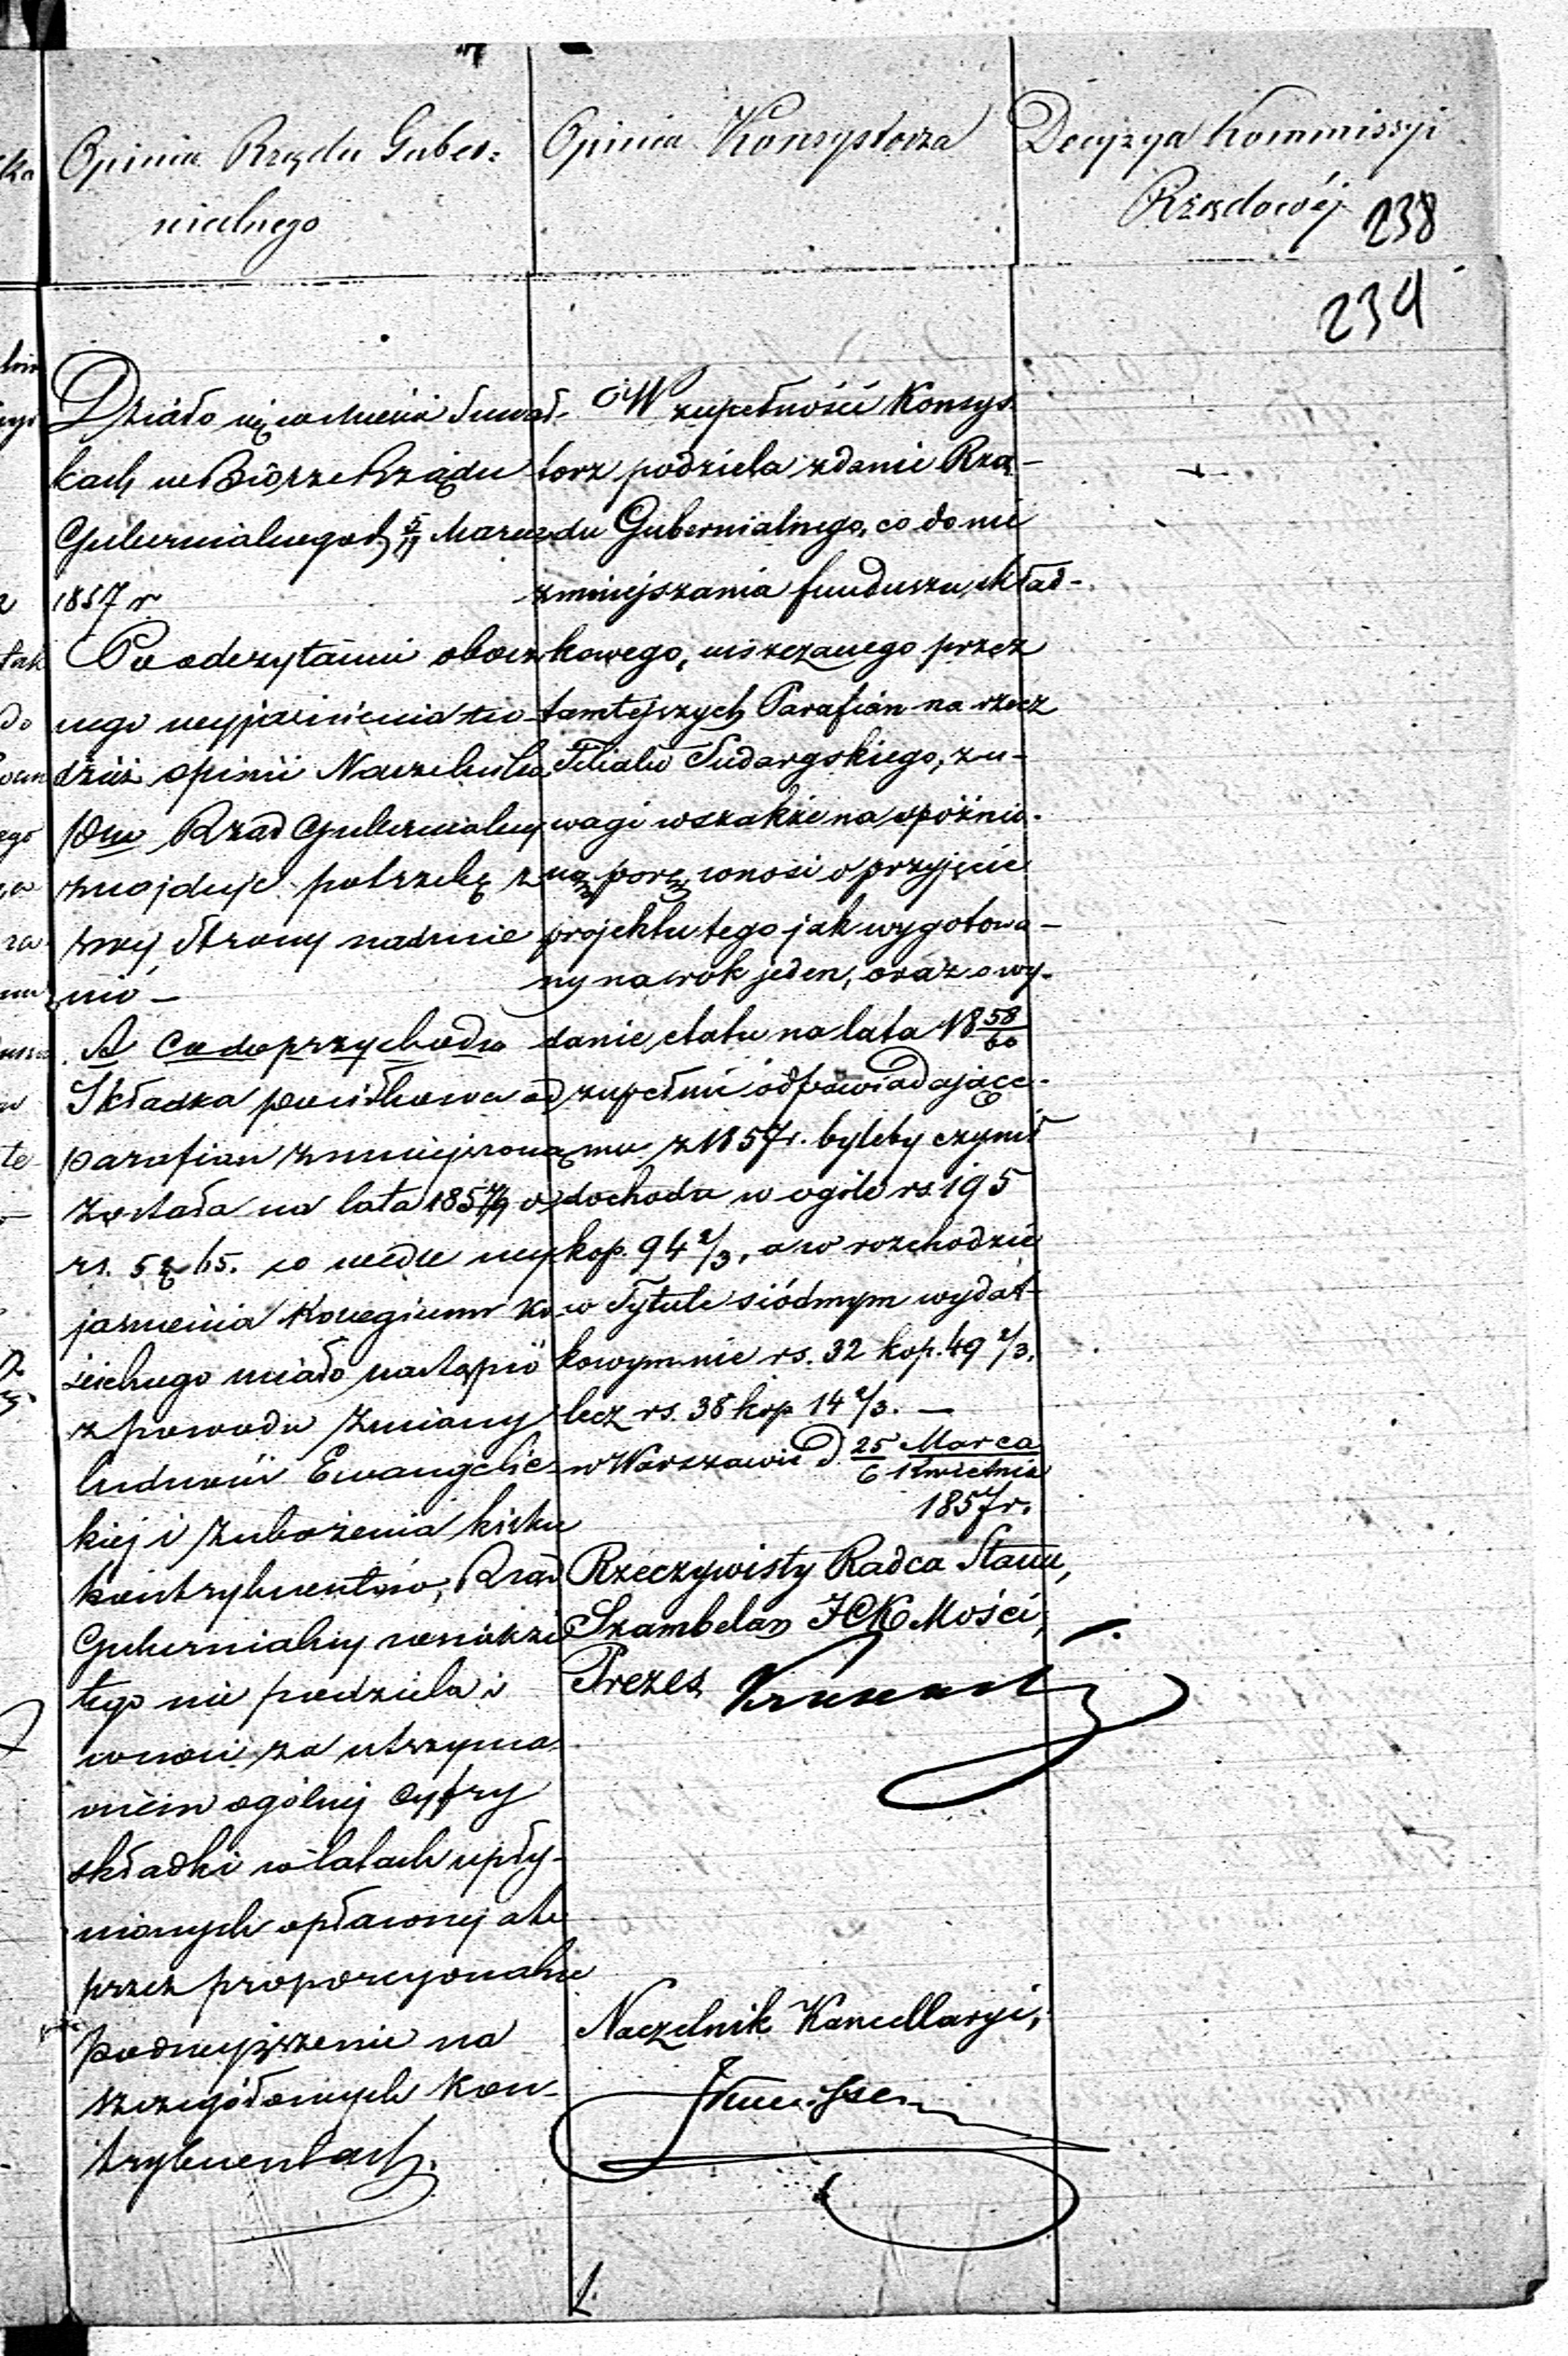 Opinia Rządu Guber=
nialnego
Opinia Konsystorza
Decyzya Kommissyi
Rządowéj
238
234
Działo się w Mieście Suwał-
kach w Biórze Rządu
Gubernialnego d 5/17 Marca
1857 r
Po odczytaniu obocz
nego wyjaśnienia tu
dzież opinii Naczelnika
Ptu Rząd Gubernialny
znajduje potrzebę z
swej strony nadmie
nić –
A Co do przychodu
Składka posiłkowa od
parafian zmniejszoną
została na lata 1857/9 o
rs. 5 k 65. co wedle wy
jaśnienia Kolegium Ko
ścielnego miało nastąpić
z powodu zmiany
ludności Ewangelic
kiej i zubożenia kilku
kontrybuentów, Rząd
Gubernialny wniosku
tego nie podziela i
wnosi za utrzyma
niem ogólnej cyfry
składki w latach upły-
nionych opłaconej ale
przez proporcyonalne
podwyższenie na
szczegółowych kon-
trybuentach.
W zupełności Konsys
torz podziela zdanie Rzą-
du Gubernialnego, co do nie
zmniejszania funduszu skład-
kowego, uiszczanego przez
tamtejszych Parafian na rzecz
Filiału Sudargskiego, z u-
wagi wszakże na spóźnio-
ną porę, wnosi o przyjęcie
projektu tego jak wygotowa-
ny na rok jeden, oraz o wy-
danie etatu na lata 18 58/60
zupełnie odpowiadające-
mu z 1857 r. byleby czynił
dochodu w ogóle rs. 195
kop. 94 2/3, a w rozchodzie
w Tytule siódmym wydat-
kowym nie rs. 32 kop. 49 2/3,
lecz rs. 38 kop 14 2/3. –
w Warszawie d. 25 Marca / 6 Kwietnia
1857 r.
Rzeczywisty Radca Stanu,
Szambelan JCK Mości,
Prezes
Naczelnik Kancellaryi,